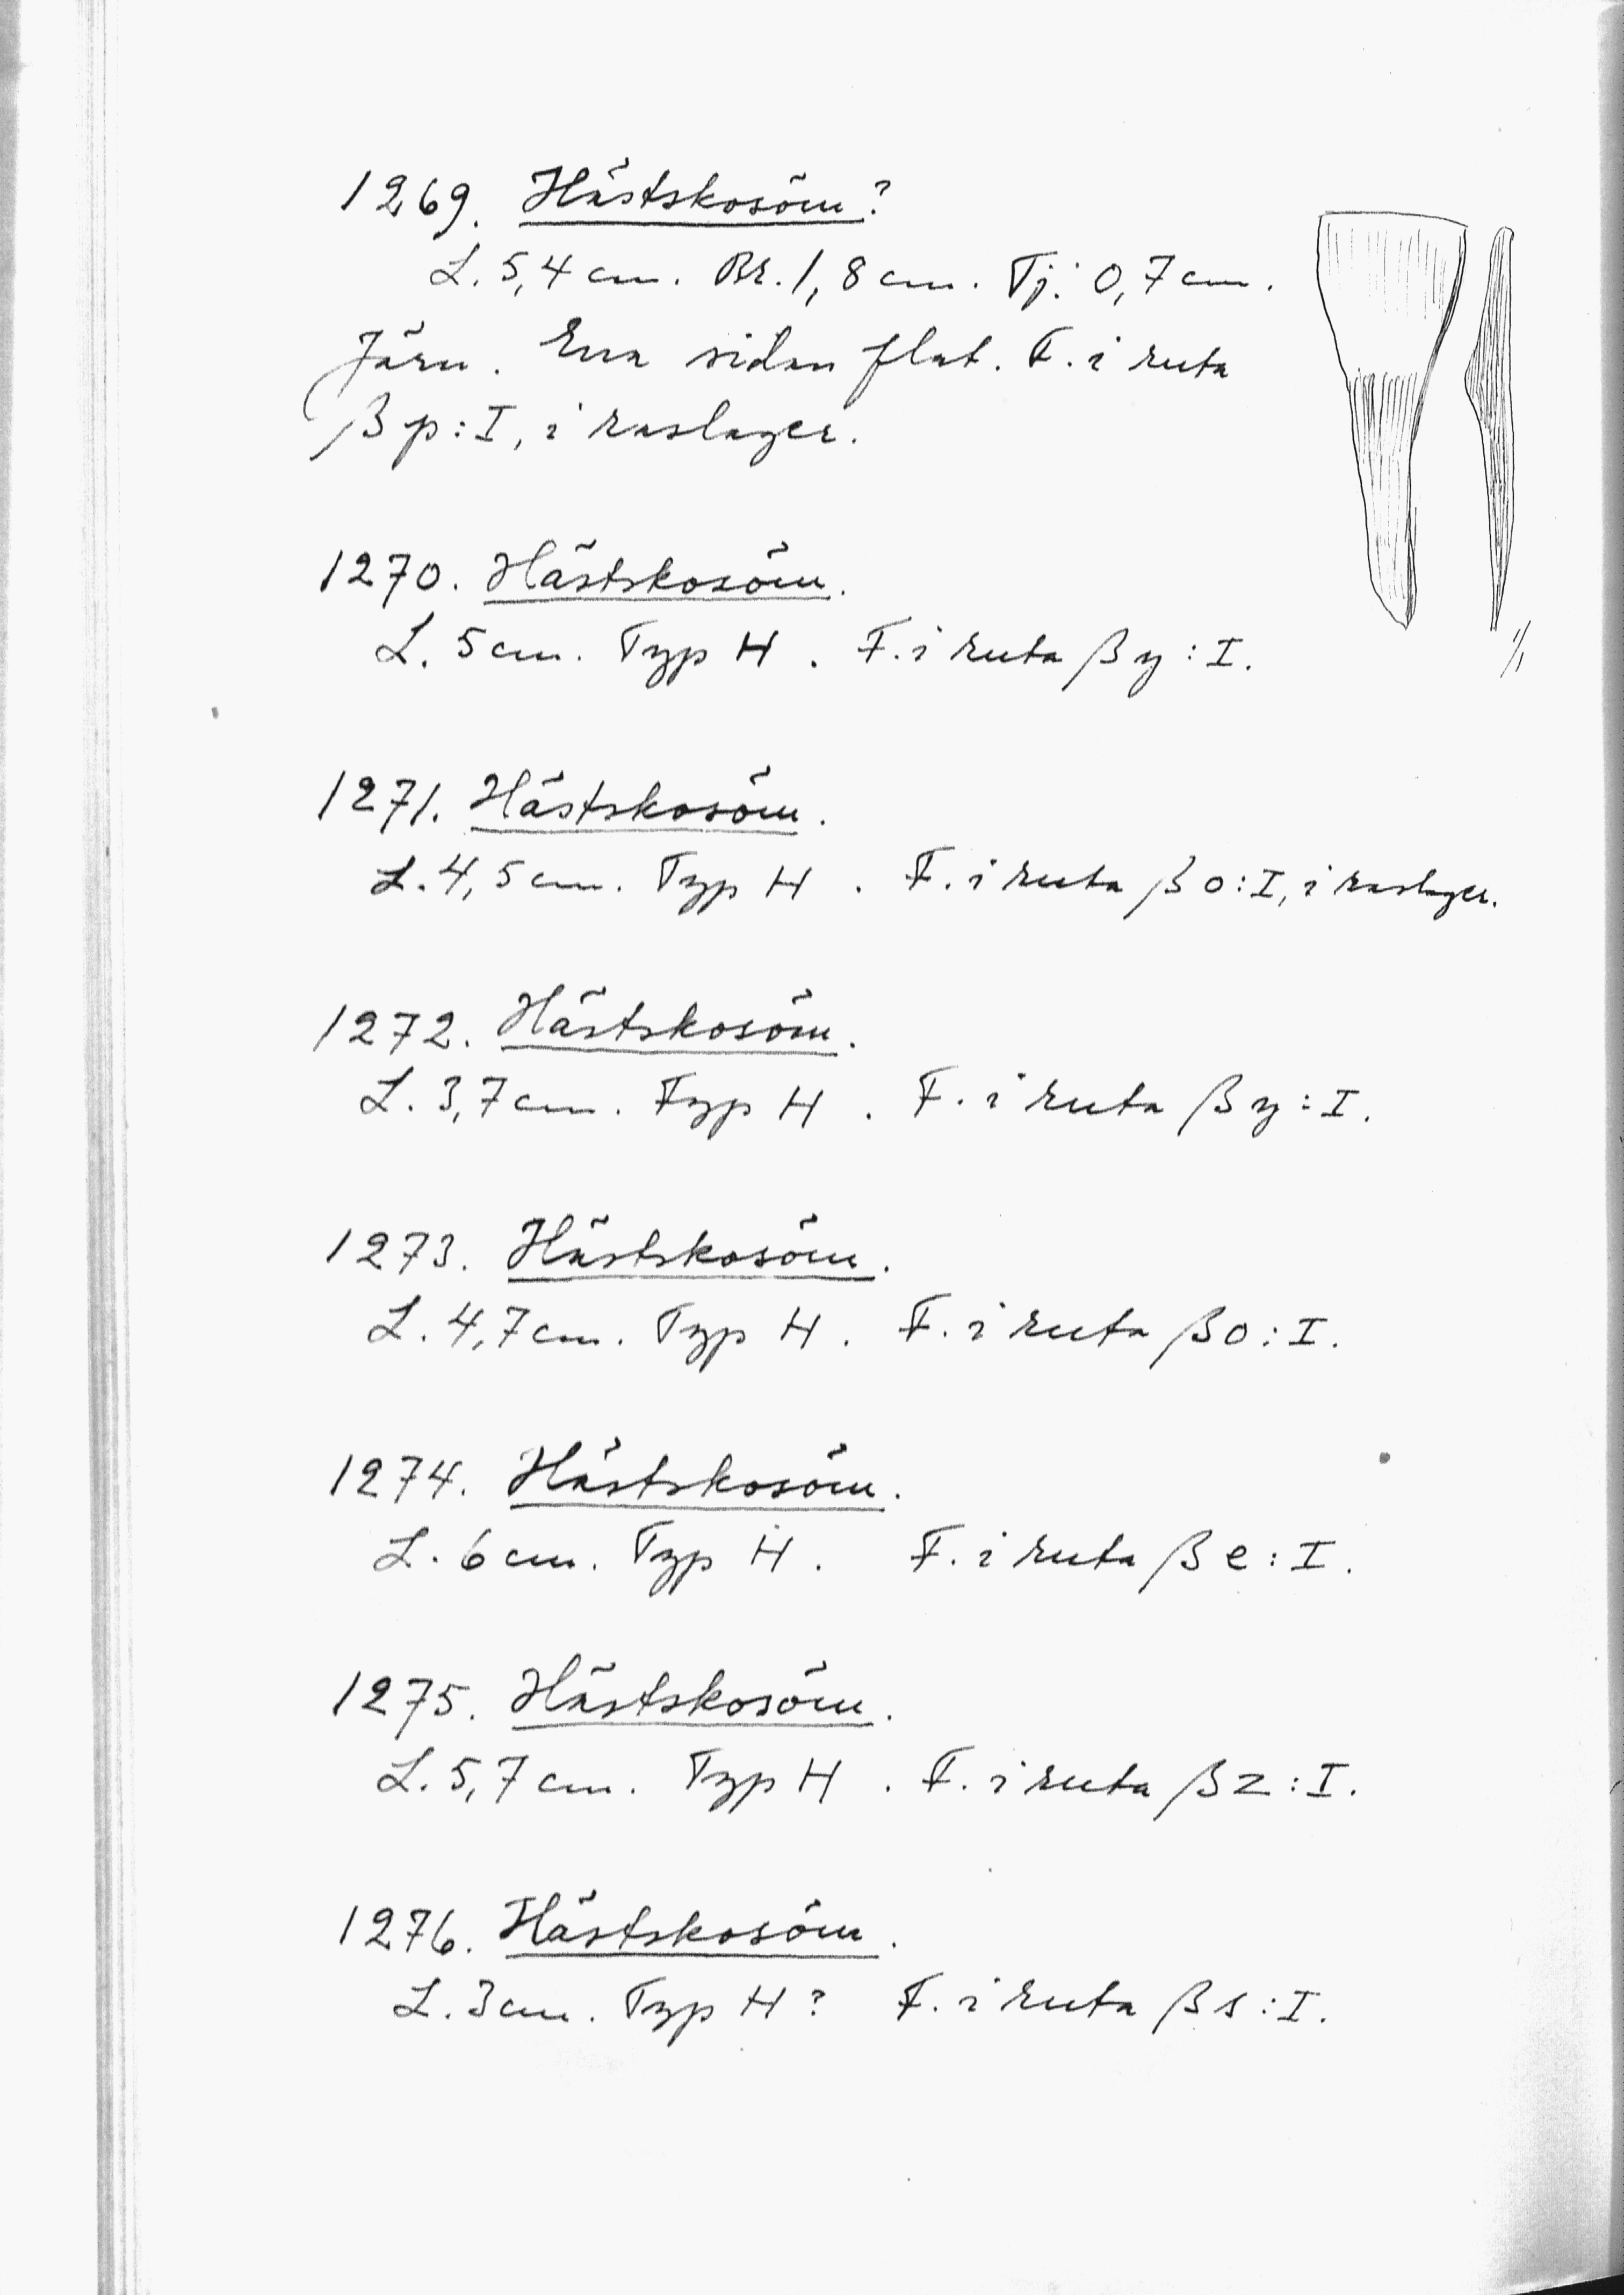 1269. Hästskosöm?
L. 5,4 cm. Br. 1,8 cm. Tj. 0,7 cm.
Järn. Ena sidan flat. F. i ruta
βp:I, i raslager.
1/1
1270. Hästskosöm.
L. 5 cm. Typ H. F. i ruta βy:I.
1271. Hästskosöm.
L. 4,5 cm. Typ H. F. i ruta βo:I, i raslager.
1272. Hästskosöm.
L. 3,7 cm. Typ H. F. i ruta βy:I.
1273. Hästskosöm.
L. 4,7 cm. Typ H. F. i ruta βo:I.
1274. Hästskosöm.
L. 6 cm. Typ H. F. i ruta βe:I.
1275. Hästskosöm.
L. 5,7 cm. Typ H. F. i ruta βz:I.
1276. Hästskosöm.
L. 3 cm. Typ H? F. i ruta βs:I.